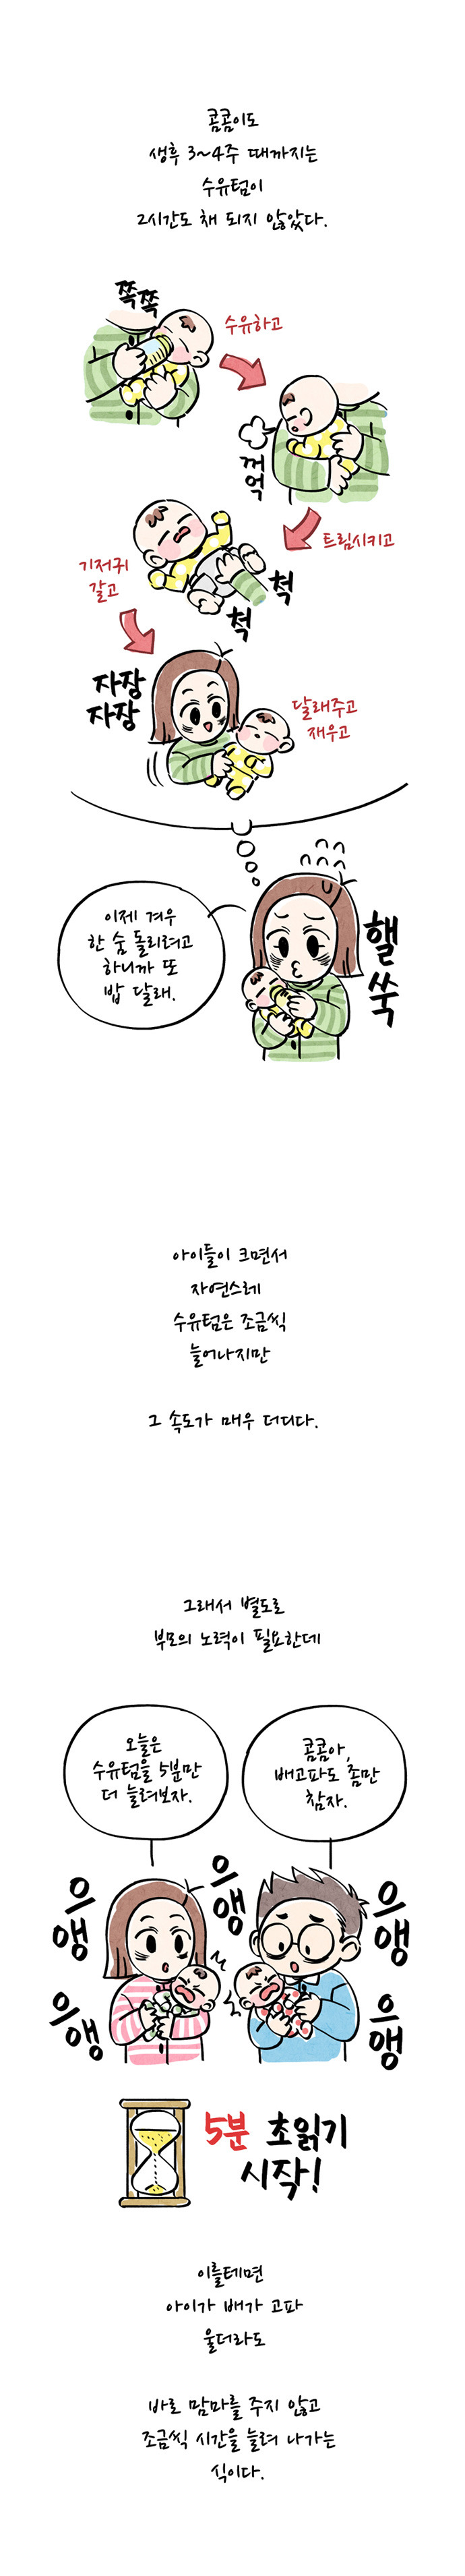 콤콤이도
생후 3~4주 때까지는
수유텀이
2시간도 채 되지 않았다.
쪽쪽
수유하고
꺼억
트림시키고
기저귀
갈고
척
척
자장
자장
달래주고
재우고
이제 겨우
한 숨 돌리려고
하니까 또
밥 달래.
핼쑥
아이들이 크면서
자연스레
수유텀은 조금씩
늘어나지만
그 속도가 매우 더디다.
그래서 별도로
부모의 노력이 필요한데
오늘은
수유텀을 5분만
더 늘려보자.
콤콤아,
배고파도 좀만
참자.
으앵
으앵
으앵
으앵
으앵
5분 초읽기
시작!
이를테면
아이가 배가 고파
울더라도
바로 맘마를 주지 않고
조금씩 시간을 늘려 나가는
식이다.